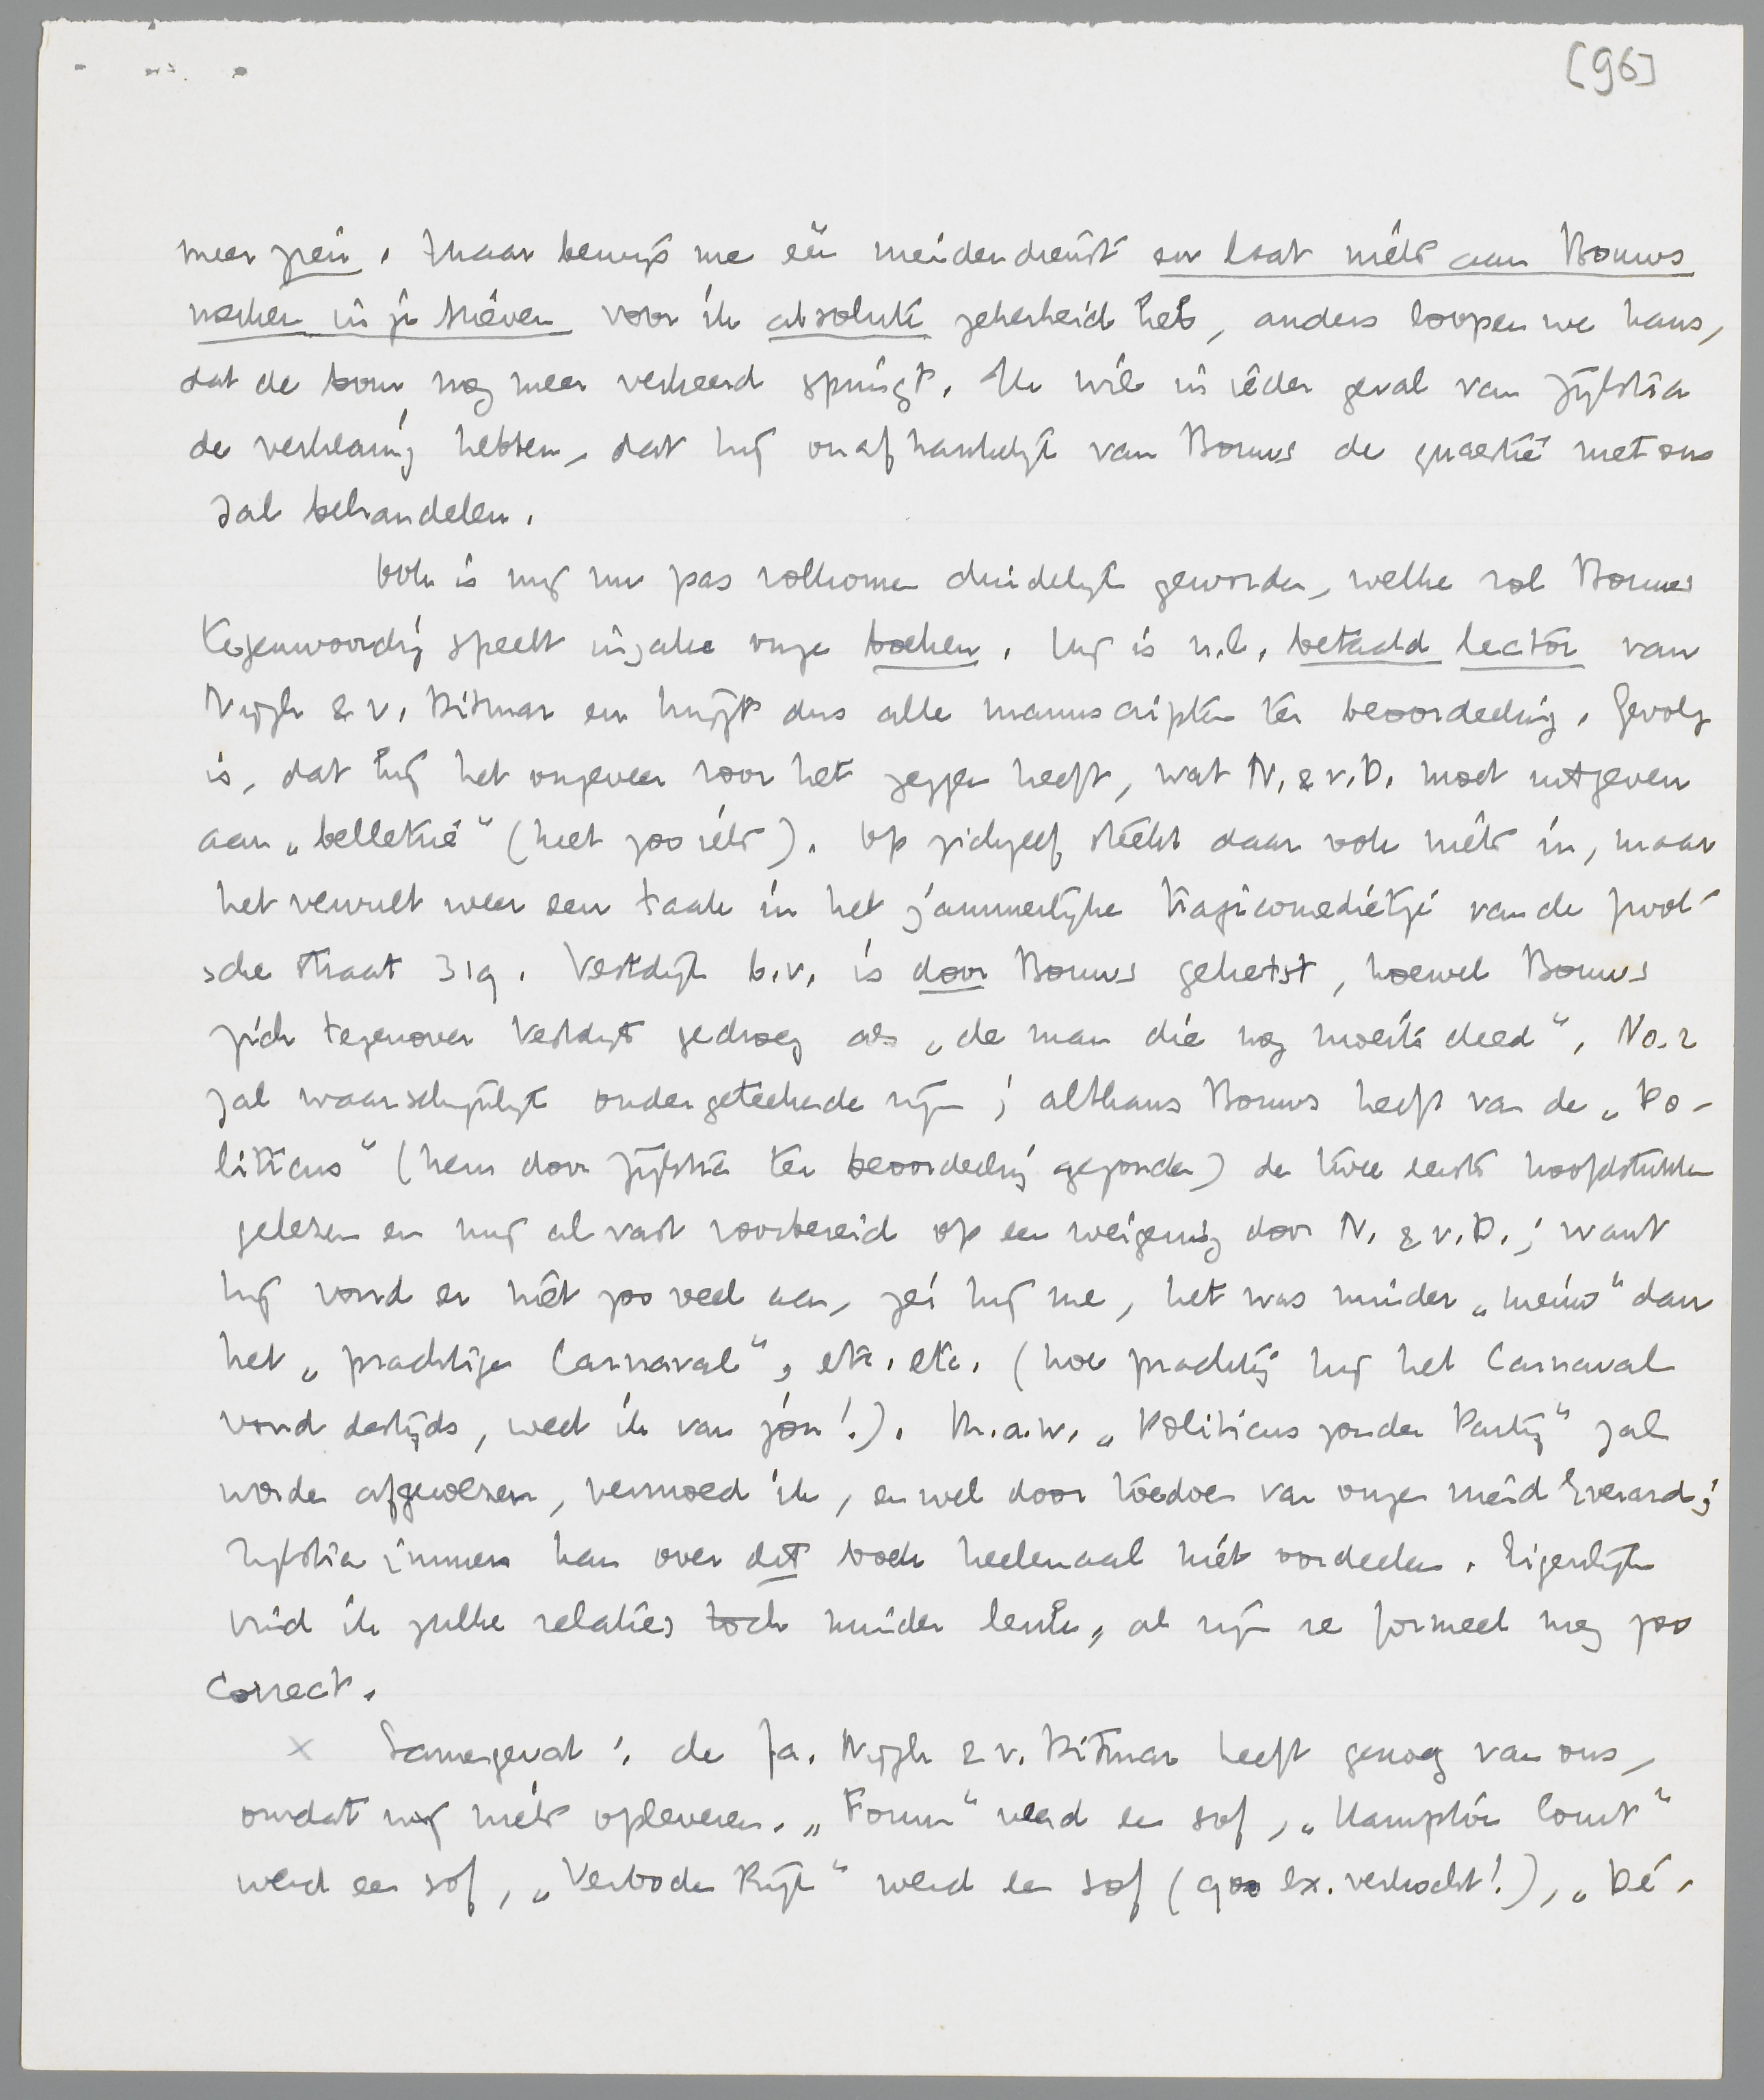 [96]
meer zein. Maar bewijs me één meidendienst en laat niets aan Bouws
merken in je brieven voor ik absolute zekerheid heb, anders loopen we kans,
dat de boer nog meer verkeerd springt. Ik wil in ieder geval van Zijlstra
de verklaring hebben, dat hij onafhankelijk van Bouws de quaestie met ons
zal behandelen.
Ook is mij nu pas volkomen duidelijk geworden, welke rol Bouws
tegenwoordig speelt inzake onze boeken. Hij is n.l. betaald lector van
Nijgh & v. Ditmar en krijgt dus alle manuscripten ter beoordeeling. Gevolg
is, dat hij het ongeveer voor het zeggen heeft, wat N. & v. D. moet uitgeven
aan „belletrie" (heet zoo iets). Op zichzelf steekt daar ook niets in, maar
het vervult weer een taak in het jammerlijke tragicomedietje van de
sche straat 319. Vestdijk b.v. is door Bouws geketst, hoewel Bouws
zich tegenover Vestdijk gedroeg als „de man die nog moeite deed". No. 2
zal waarschijnlijk ondergeteekende zijn; althans Bouws heeft van de „Po-
liticus" (hem door Zijlstra ter beoordeeling gezonden) de twee eerste hoofdstukken
gelezen en mij al vast voorbereid op een weigering door N. & v. D.; want
hij vond er niet zoo veel aan, zei hij me, het was minder „nieuw" dan
het „prachtige Carnaval", etc. etc. (hoe prachtig hij het Carnaval
vond destijds, weet ik van jòu!). M.a.w. „Politicus zonder Partij" zal
worden afgewezen, vermoed ik, en wel door toedoen van onze meid Everard;
Zijlstra immers kan over dat boek heelemaal niet oordeelen. Eigenlijk
vind ik zulke relaties toch minder leuk, al zijn ze formeel nog zoo
correct.
x Samengevat: de fa. Nijgh & v. Ditmar heeft genoeg van ons,
omdat wij niets opleveren. „Forum" werd een sof, „Hampton Court"
werd een sof, „Verboden Rijk" werd een sof (900 ex. verkocht!), „Dé-